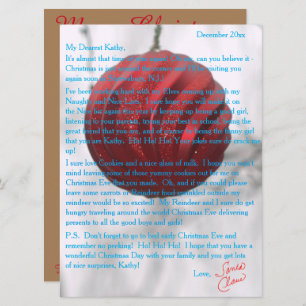 Merry Christmas
December 20xx
My Dearest Kathy,
It's almost that time of the year! Can you believe it -
Christmas is just around the corner and I'll be visiting you
again soon in N.J.!
I've been working hard with my Elves coming up with my
Naughty and Nice List. I sure hope you will make it on
the Nice list again this year by keeping up being a good girl,
listening to your parents, trying your best in school, being the
great friend that you are, and of course being the funny girl
that you are Kathy. Ho! Ho! Ho! Your jokes sure do crack me
up!
I sure love Cookies and a nice glass of milk. I hope you won't
mind leaving some of those yummy cookies out for me on
Christmas Eve that you made. Oh, and if you could please
leave some carrots or Reindeer food sprinkled outside my
reindeer would be so excited! My Reindeer and I sure do get
hungry traveling around the world Christmas Eve delivering
presents to all the good boys and girls!
P.S. Don't forget to go to bed early Christmas Eve and
remember no peeking! Ho! Ho! Ho! I hope that you have a
wonderful Christmas Day with your family and you get lots
of nice surprises, Kathy!
Love, Santa
Claus